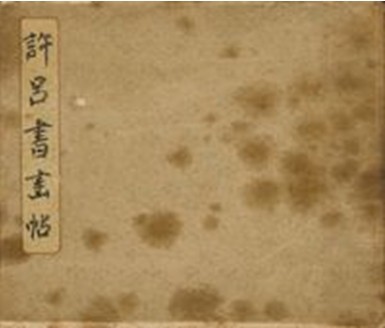 許呂書画帖